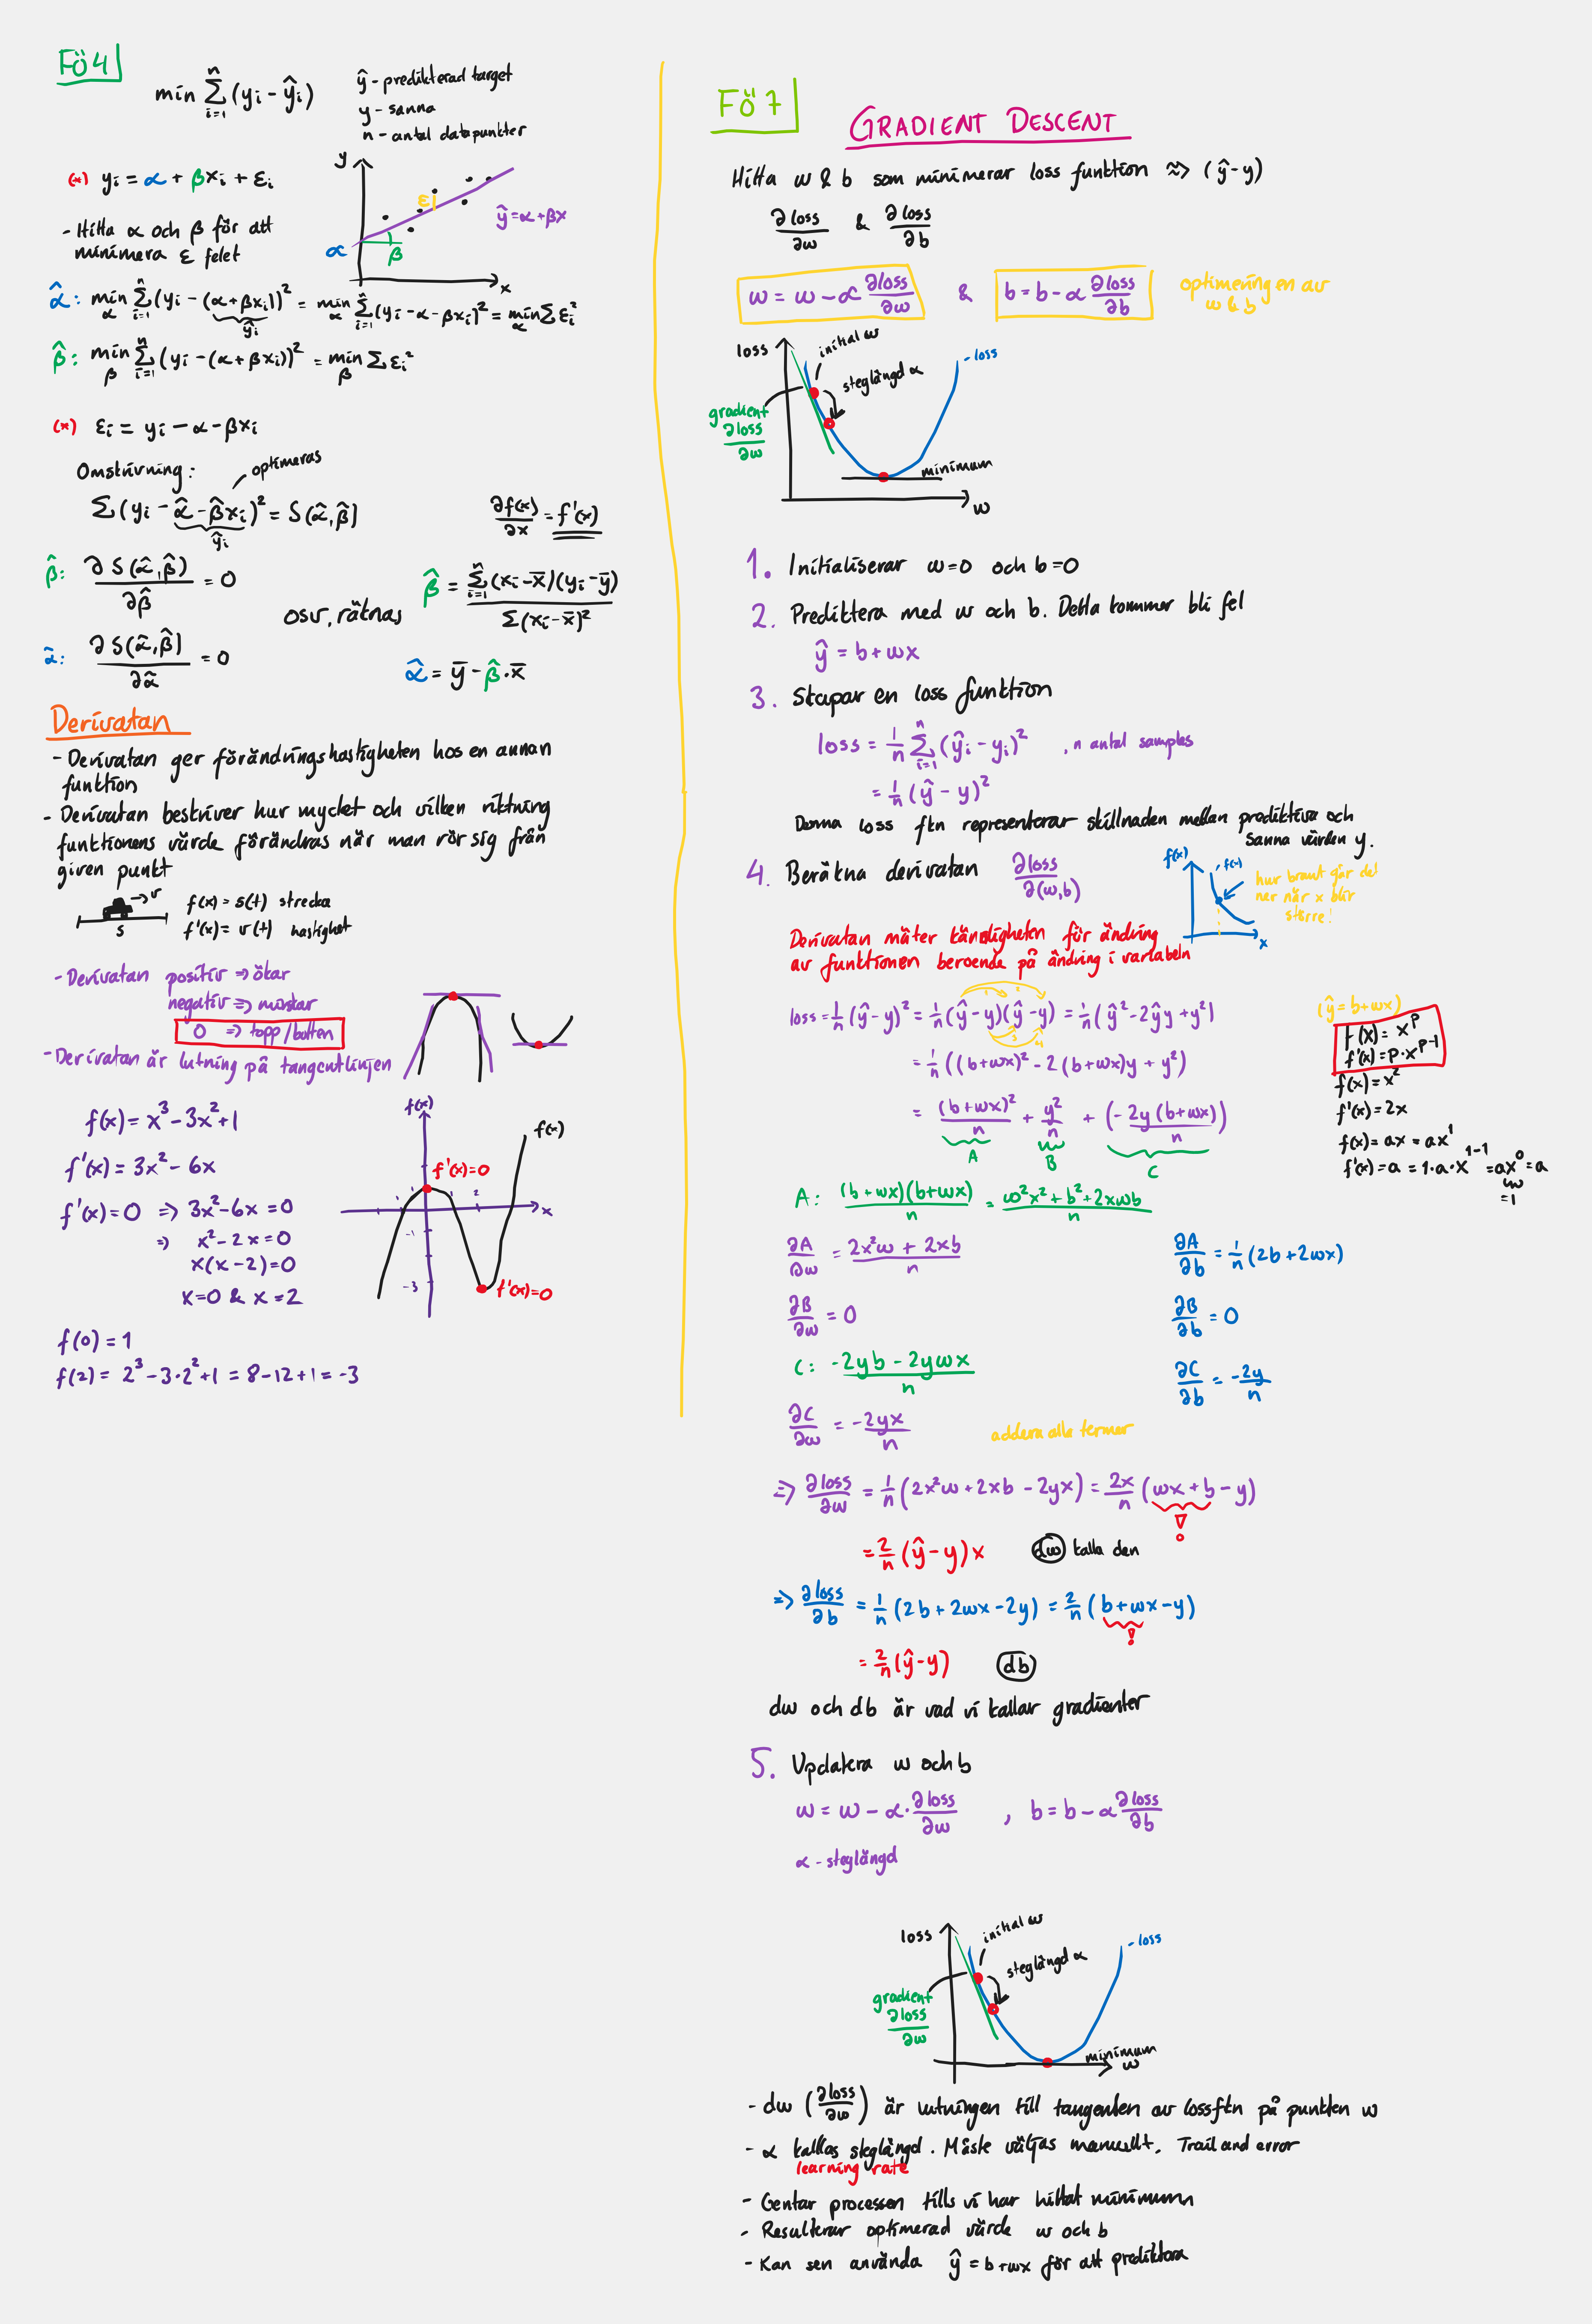 Fö 4
min Σ_{i=1}^{n} (y_i - ŷ_i)
ŷ - predikterad target
y - sanna
n - antal datapunkter
(*) y_i = α + βx_i + ε_i
- Hitta α och β för att
minimera ε felet
y
ε
ŷ = α + βx
α
β
x
α̂: min_α Σ_{i=1}^{n} (y_i - (α + βx_i))² = min_α Σ_{i=1}^{n} (y_i - α - βx_i)² = min_α Σ ε_i²
ŷ_i
β̂: min_β Σ_{i=1}^{n} (y_i - (α + βx_i))² = min_β Σ ε_i²
(*) ε_i = y_i - α - βx_i
Omskrivning: optimeras
Σ (y_i - α̂ - β̂x_i)² = S(α̂, β̂)
ŷ_i
∂f(x)/∂x = f'(x)
β̂: ∂S(α̂, β̂)/∂β̂ = 0
osv, räknas
β̂ = Σ_{i=1}^{n} (x_i - x̄)(y_i - ȳ) / Σ(x_i - x̄)²
α̂: ∂S(α̂, β̂)/∂α̂ = 0
α̂ = ȳ - β̂·x̄
Derivatan
- Derivatan ger förändringshastigheten hos en annan
funktion
- Derivatan beskriver hur mycket och vilken riktning
funktionens värde förändras när man rör sig från
given punkt
v
s
f(x) = s(t) sträcka
f'(x) = v(t) hastighet
- Derivatan positiv => ökar
negativ => minskar
0 => topp/botten
- Derivatan är lutning på tangentlinjen
f(x) = x³ - 3x² + 1
f'(x) = 3x² - 6x
f'(x) = 0 => 3x² - 6x = 0
=> x² - 2x = 0
x(x - 2) = 0
x = 0 & x = 2
f(x)
f(x)
f'(x) = 0
1
1
2
x
-1
-3
f'(x) = 0
f(0) = 1
f(2) = 2³ - 3·2² + 1 = 8 - 12 + 1 = -3
Fö 7
GRADIENT DESCENT
Hitta w & b som minimerar loss funktion ≈> (ŷ - y)
∂loss/∂w & ∂loss/∂b
w = w - α ∂loss/∂w & b = b - α ∂loss/∂b
optimeringen av
w & b
loss
initial w
steglängd α
- loss
gradient
∂loss/∂w
minimum
w
1. Initialiserar w=0 och b=0
2. Prediktera med w och b. Detta kommer bli fel
ŷ = b + wx
3. Skapar en loss funktion
loss = 1/n Σ_{i=1}^{n} (ŷ_i - y_i)² , n antal samples
= 1/n (ŷ - y)²
Denna loss ftn representerar skillnaden mellan prediktiva och
sanna värden y.
4. Beräkna derivatan ∂loss/∂(w,b)
f(x)
, f(x)
x
hur brant går det
ner när x blir
större!
Derivatan mäter känsligheten för ändring
av funktionen beroende på ändring i variabeln
loss = 1/n (ŷ - y)² = 1/n (ŷ - y)(ŷ - y) = 1/n (ŷ² - 2ŷy + y²)
1 2
3 4
(ŷ = b + wx)
= 1/n ((b + wx)² - 2(b + wx)y + y²)
= (b + wx)²/n + y²/n + (-2y(b + wx)/n)
A B C
f(x) = x^p
f'(x) = p·x^{p-1}
f(x) = x²
f'(x) = 2x
f(x) = ax = ax¹
f'(x) = a = 1·a·x^{1-1} = ax⁰ = a
=1
A: (b + wx)(b + wx)/n = (w²x² + b² + 2xwb)/n
∂A/∂w = (2x²w + 2xb)/n
∂A/∂b = 1/n (2b + 2wx)
∂B/∂w = 0
∂B/∂b = 0
C: (-2yb - 2ywx)/n
∂C/∂b = -2y/n
∂C/∂w = -2yx/n
addera alla termer
=> ∂loss/∂w = 1/n (2x²w + 2xb - 2yx) = 2x/n (wx + b - y)
!
= 2/n (ŷ - y)x dw kalla den
=> ∂loss/∂b = 1/n (2b + 2wx - 2y) = 2/n (b + wx - y)
!
= 2/n (ŷ - y) db
dw och db är vad vi kallar gradienter
5. Updatera w och b
w = w - α·∂loss/∂w , b = b - α ∂loss/∂b
α - steglängd
loss
initial w
steglängd α
- loss
gradient
∂loss/∂w
minimum
w
- dw (∂loss/∂w) är lutningen till tangenten av lossftn på punkten w
- α kallas steglängd. Måste väljas manuellt. Trail and error
learning rate
- Gentar processen tills vi har hittat minimum
- Resulterar optimerad värde w och b
- Kan sen använda ŷ = b + wx för att prediktera